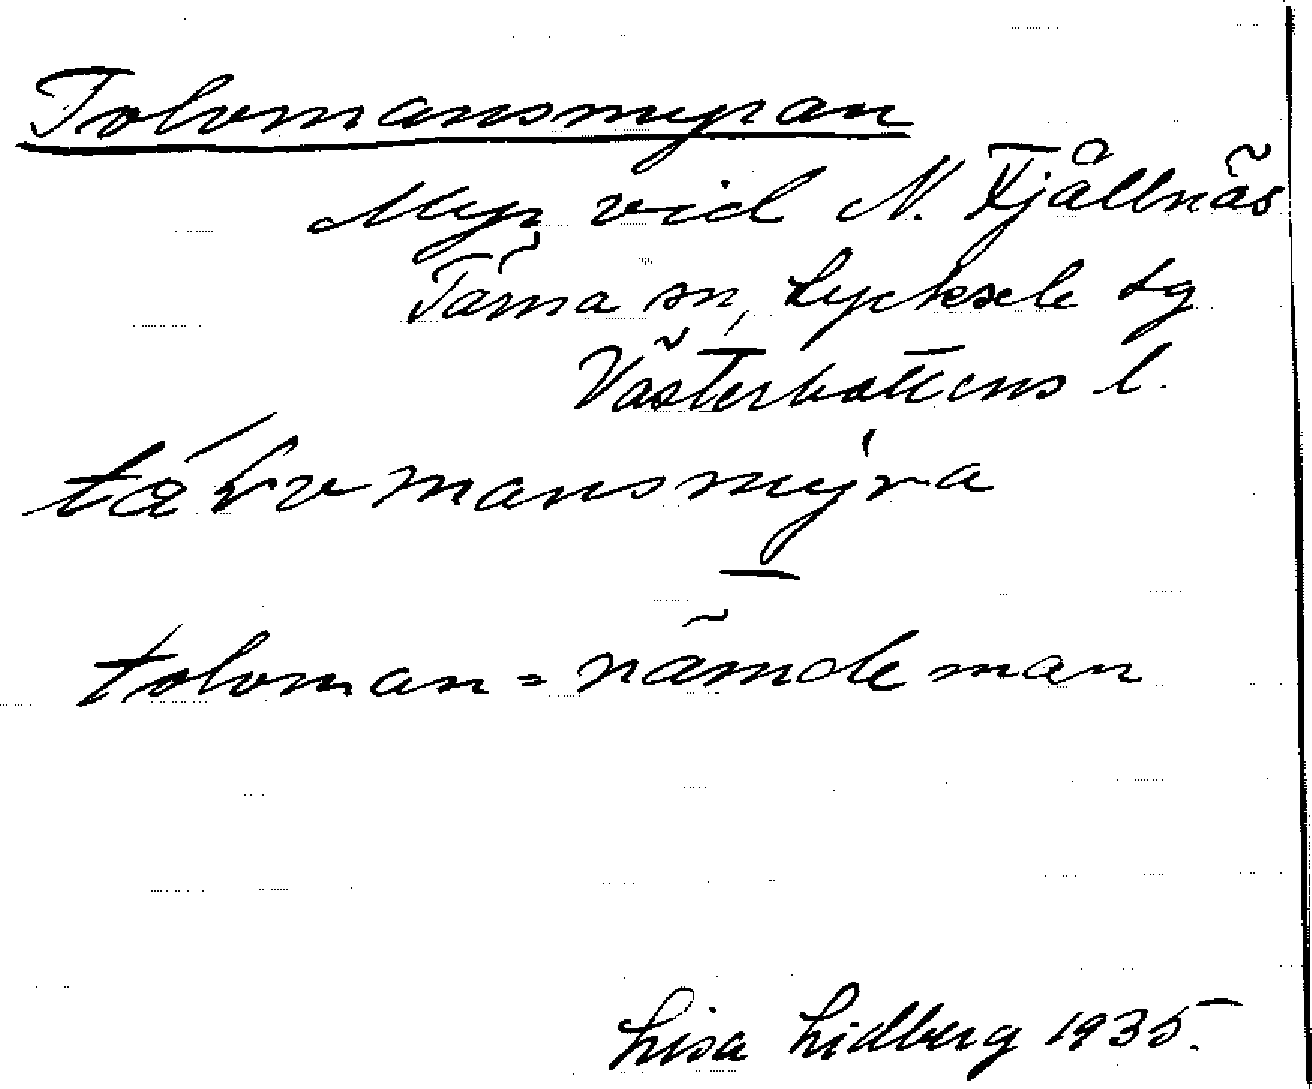 Tolvmansmyran
Myr vid N. Fjällnäs
Tärna sn, Lycksele tg
Västerbottens l.
mansmýra
tolvman = nämdeman
Lisa Lidberg 1935.